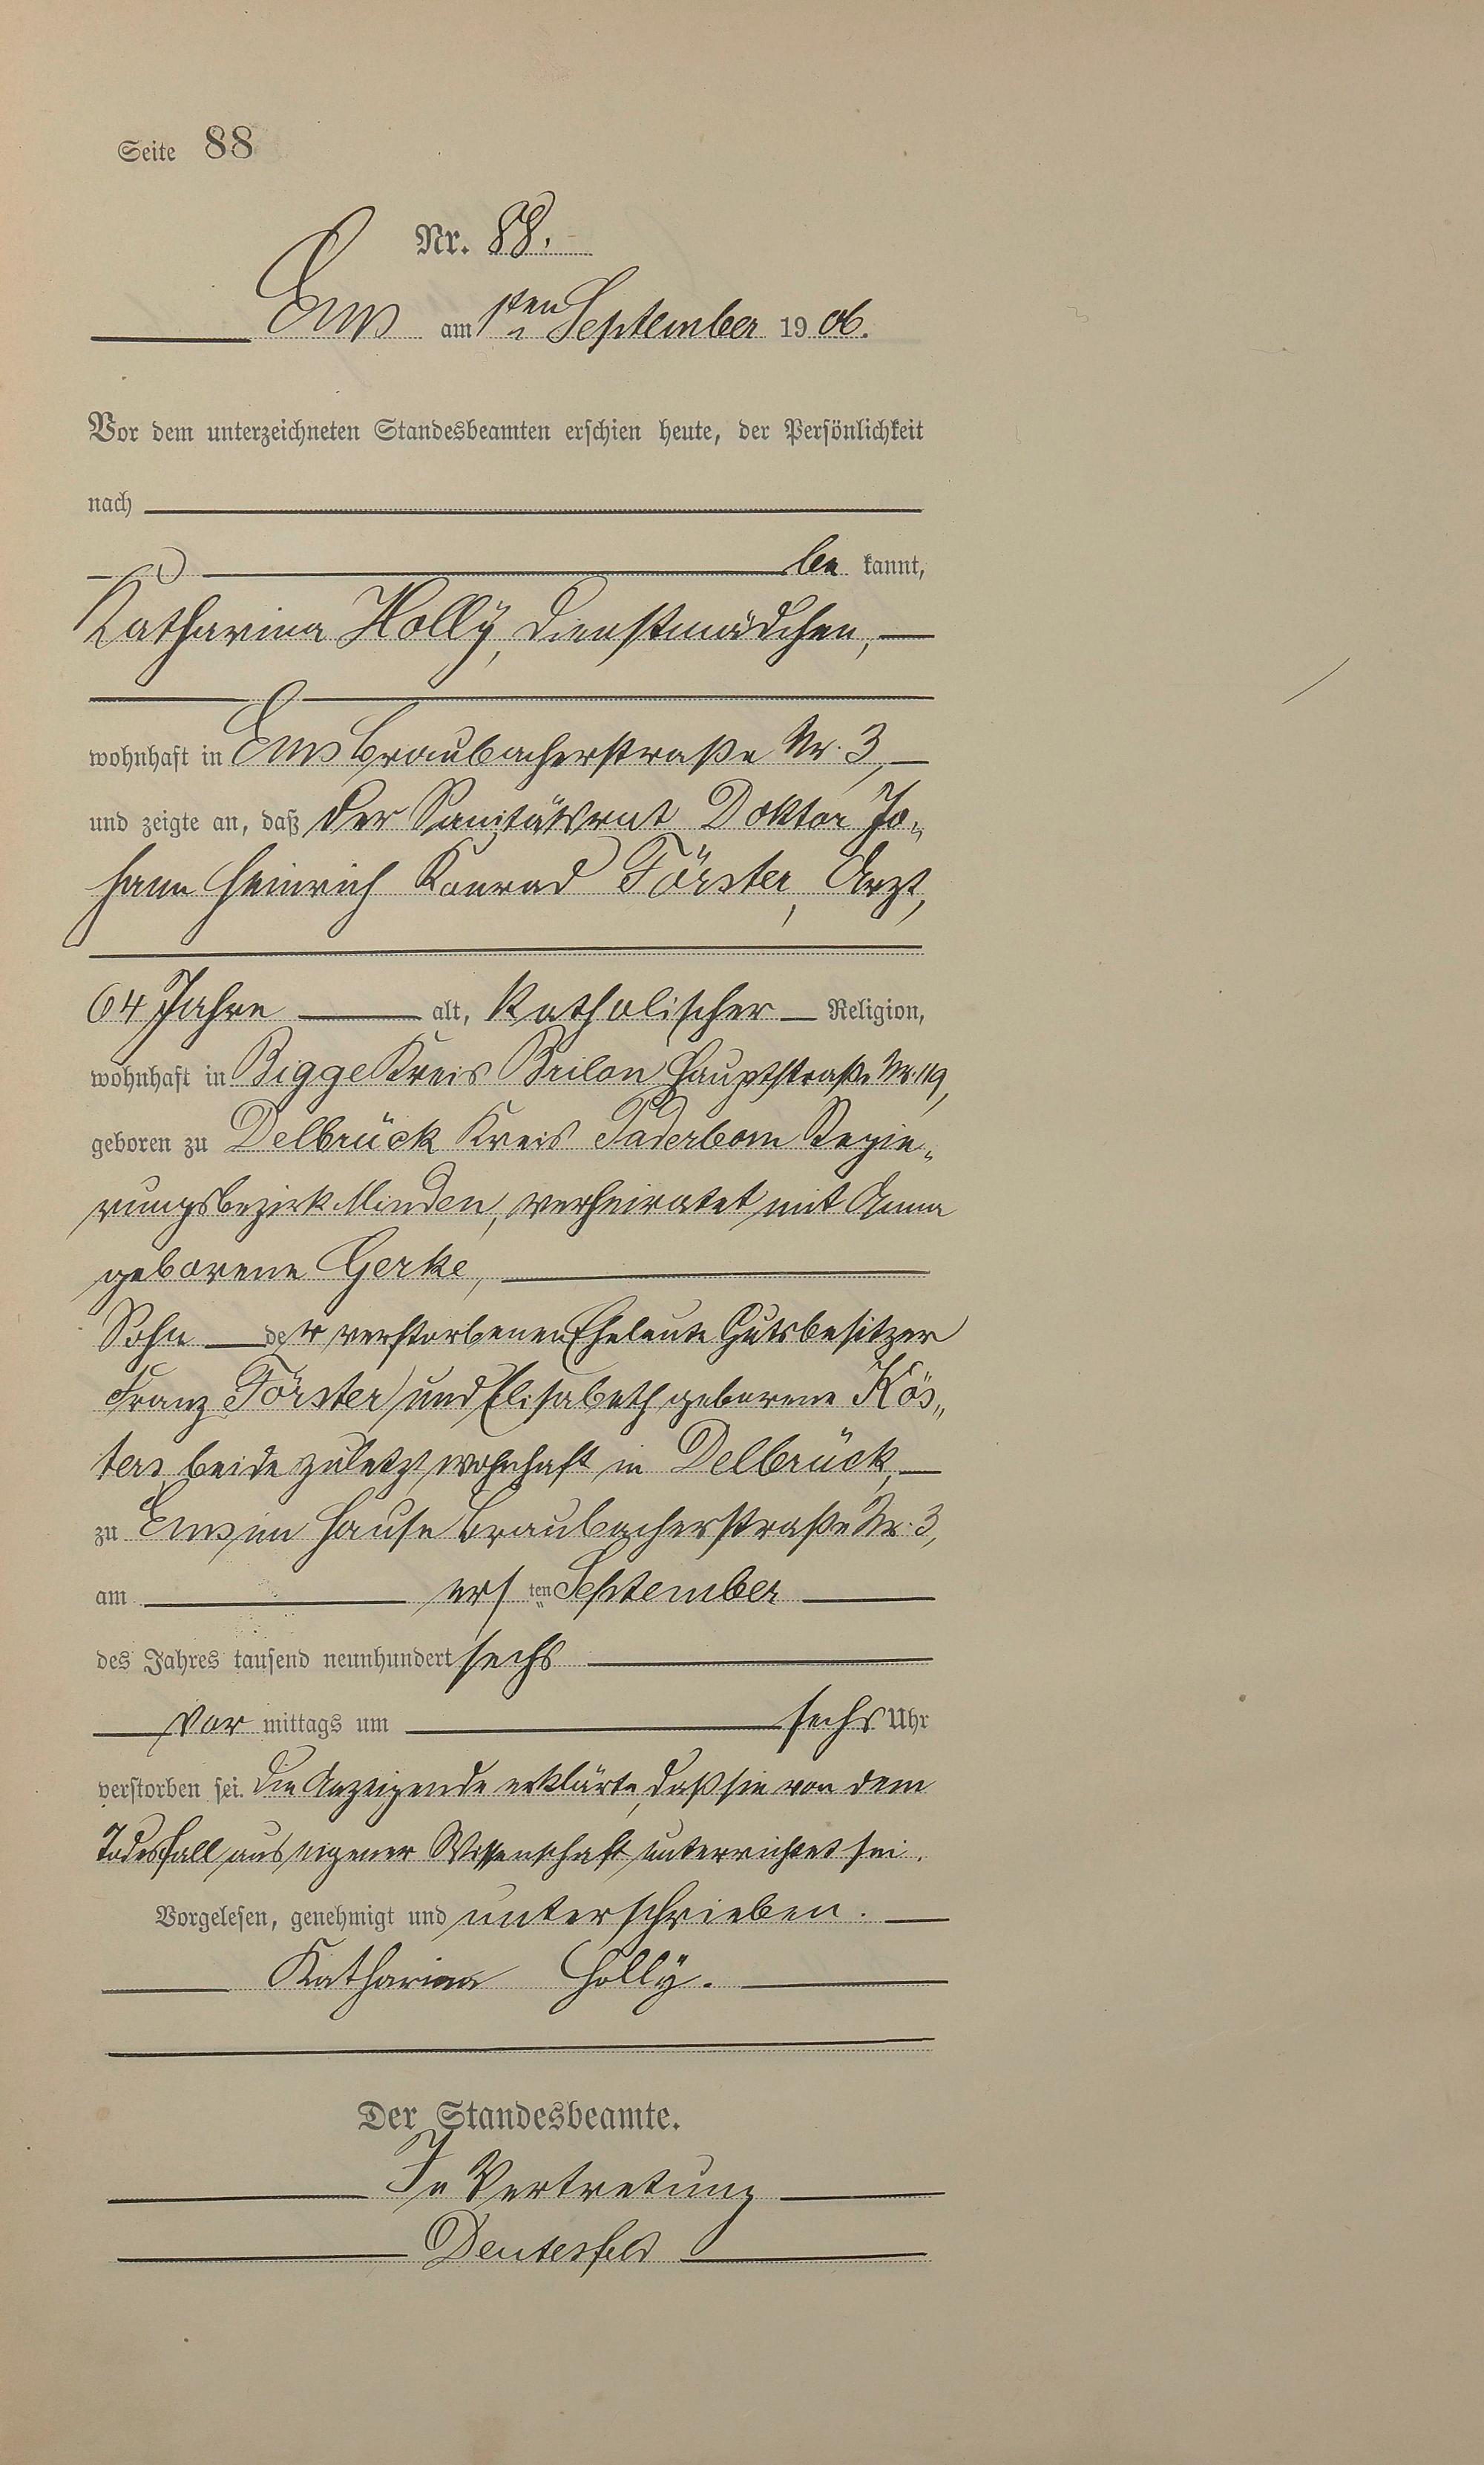 Seite 88
Nr. 88.
Ems am 1ten September 1906.
Vor dem unterzeichneten Standesbeamten erschien heute, der Persönlichkeit
nach
be kannt,
Katharina Holly, Dienstmädchen,
wohnhaft in Ems Braubacherstraße Nr. 3,
und zeigte an, daß der Sanitätsrat Doktor Jo„
hann Heinrich Konrad Förster, Arzt,
64 Jahre alt, katholischer Religion,
wohnhaft in Bigge Kreis Brilon Hauptstraße Nr. 119,
geboren zu Delbrück Kreis Paderborn Regie„
rungsbezirk Minden, verheiratet mit Anna
geborene Gerke,
Sohn der verstorbenen Eheleute Gutsbesitzer
Franz Förster und Elisabeth geborene Kös„
ters, beide zuletzt wohnhaft in Delbrück,
zu Ems im Hause Braubacherstraße Nr. 3,
am ersten September
des Jahres tausend neunhundert sechs
vor mittags um sechs Uhr
verstorben sei. Die Anzeigende erklärte, daß sie von dem
Todesfall aus eigener Wissenschaft unterrichtet sei.
Vorgelesen, genehmigt und unterschrieben.
Katharina Holly.
Der Standesbeamte.
In Vertretung
Deutesfeld